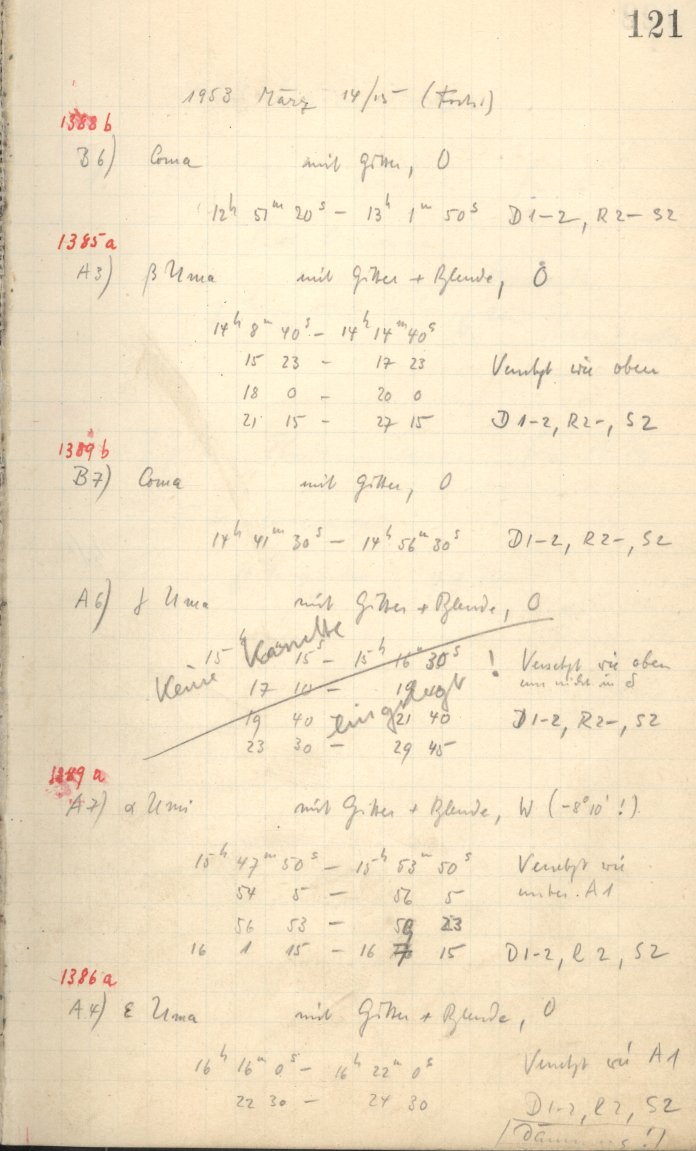 121
1953 März 14/15
1388 b
B6) Coma mit Gitter, O
12h 51m 20s – 13h 1m 50s D1–2, R2– S2
1385 a
A3) β Uma mit Gitter + Blende, O
14h 8m 40s – 14h 14m 40s
15 23 – 17 23 Versetzt wie oben
18 0 – 20 0
21 15 – 27 15 D1–2, R2–, S2
1389 b
B7) Coma mit Gitter, O
14h 41m 30s – 14h 56m 30s D1–2, R2–, S2
A6) γ Uma mit Gitter + Blende, O
15h 15s – 15h 16m 30s ! Versetzt wie oben
Keine Kassette eingelegt
nur nicht in δ
17 10 –
19 40 – 21 40 D1–2, R2–, S2
23 30 – 29 45
1389 a
A7) α Umi mit Gitter + Blende, W (–8°10' !)
15h 47m 50s – 15h 53m 50s Versetzt wie
54 5 – 56 5 unter A1
56 53 – 59 23
16 1 15 – 16 7 15 D1–2, R2, S2
1386 a
A4) ε Uma mit Gitter + Blende, O
16h 16m 0s – 16h 22m 0s Versetzt wie A1
22 30 – 24 30 D1–2, R2, S2
Dämmerung !